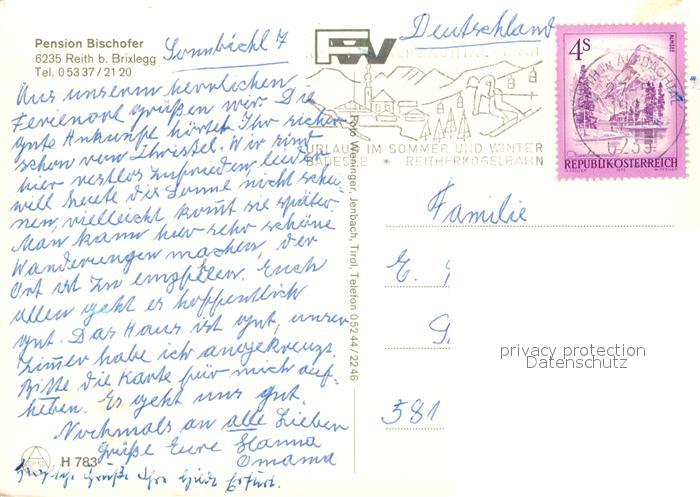 Pension Bischofer
6235 Reith b. Brixlegg
Tel. 0 53 37 / 21 20
Sonnbichl 7
Aus unserem herrlichen
Ferienort grüßen wir. Die
gute Ankunft hörtet Ihr sicher
schon von Christel. Wir sind
hier restlos zufrieden, leider
will heute die Sonne nicht schei-
nen, vielleicht kommt sie später.
Man kann hier sehr schöne
Wanderungen machen, der
Ort ist zu empfehlen. Euch
allen geht es hoffentlich
gut. Das Haus ist gut, unser
Zimmer habe ich angekreuzt.
Bitte die Karte für mich auf-
heben. Es geht uns gut.
Nochmals an alle Lieben
Grüße Eure Hanna
Omama
Grüße Ihre Hilde Erfurt.
H 783
Foto Weninger, Jenbach, Tirol, Telefon 0 52 44 / 22 46
Deutschland
URLAUB IM SOMMER UND WINTER
BADESEE * REITHERKOGELBAHN
REITH IM ALPBACHTAL
6235
4 S
ALMSEE
REPUBLIK ÖSTERREICH
Familie
E.
G.
581
privacy protection
Datenschutz